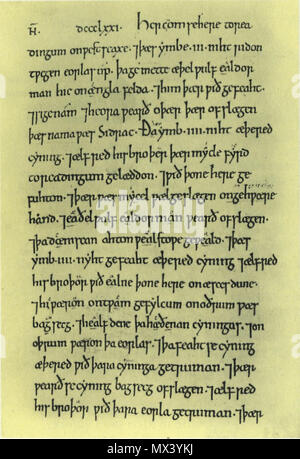 DCCCLXXI. Her com se here to rea
dingum on westseaxe. ⁊ þæs ymbe .iii. niht ridon
twegen eorlas up. þa gemette æþelwulf ealdor
man hie on engla felda. ⁊ him þær wið gefeaht.
⁊ sige nam. ⁊ heora wearð oþer þær ofslægen
þæs nama wæs Sidrac. Ða ymb .iiii. niht æþered
cyning. ⁊ ælfred his broþer þær mycle fyrd
to readingum gelæddon. ⁊ wið þone here ge
fuhton. ⁊ þær wæs mycel wæl geslægen on gehwæþere
hand. ⁊ æðelwulf ealdorman wearð ofslægen.
⁊ þa deniscan ahton wælstowe geweald. ⁊ þæs
ymb .iiii. nyht gefeaht æþered cyning ⁊ ælfred
his broþor wið ealne þone here on æscesdune.
⁊ hi wæron on twam gefylcum on oðrum wæs
bagsecg. ⁊ healfdene þa hæðenan cyningas. ⁊ on
oþrum wæron þa eorlas. ⁊ þa feaht se cyning
æþered wið þara cyninga getruman. ⁊ þær
wearð se cyning bagsecg ofslægen. ⁊ ælfred
his broþor wið þara eorla getruman. ⁊ þær
alamy
MX3YKJ
www.alamy.com